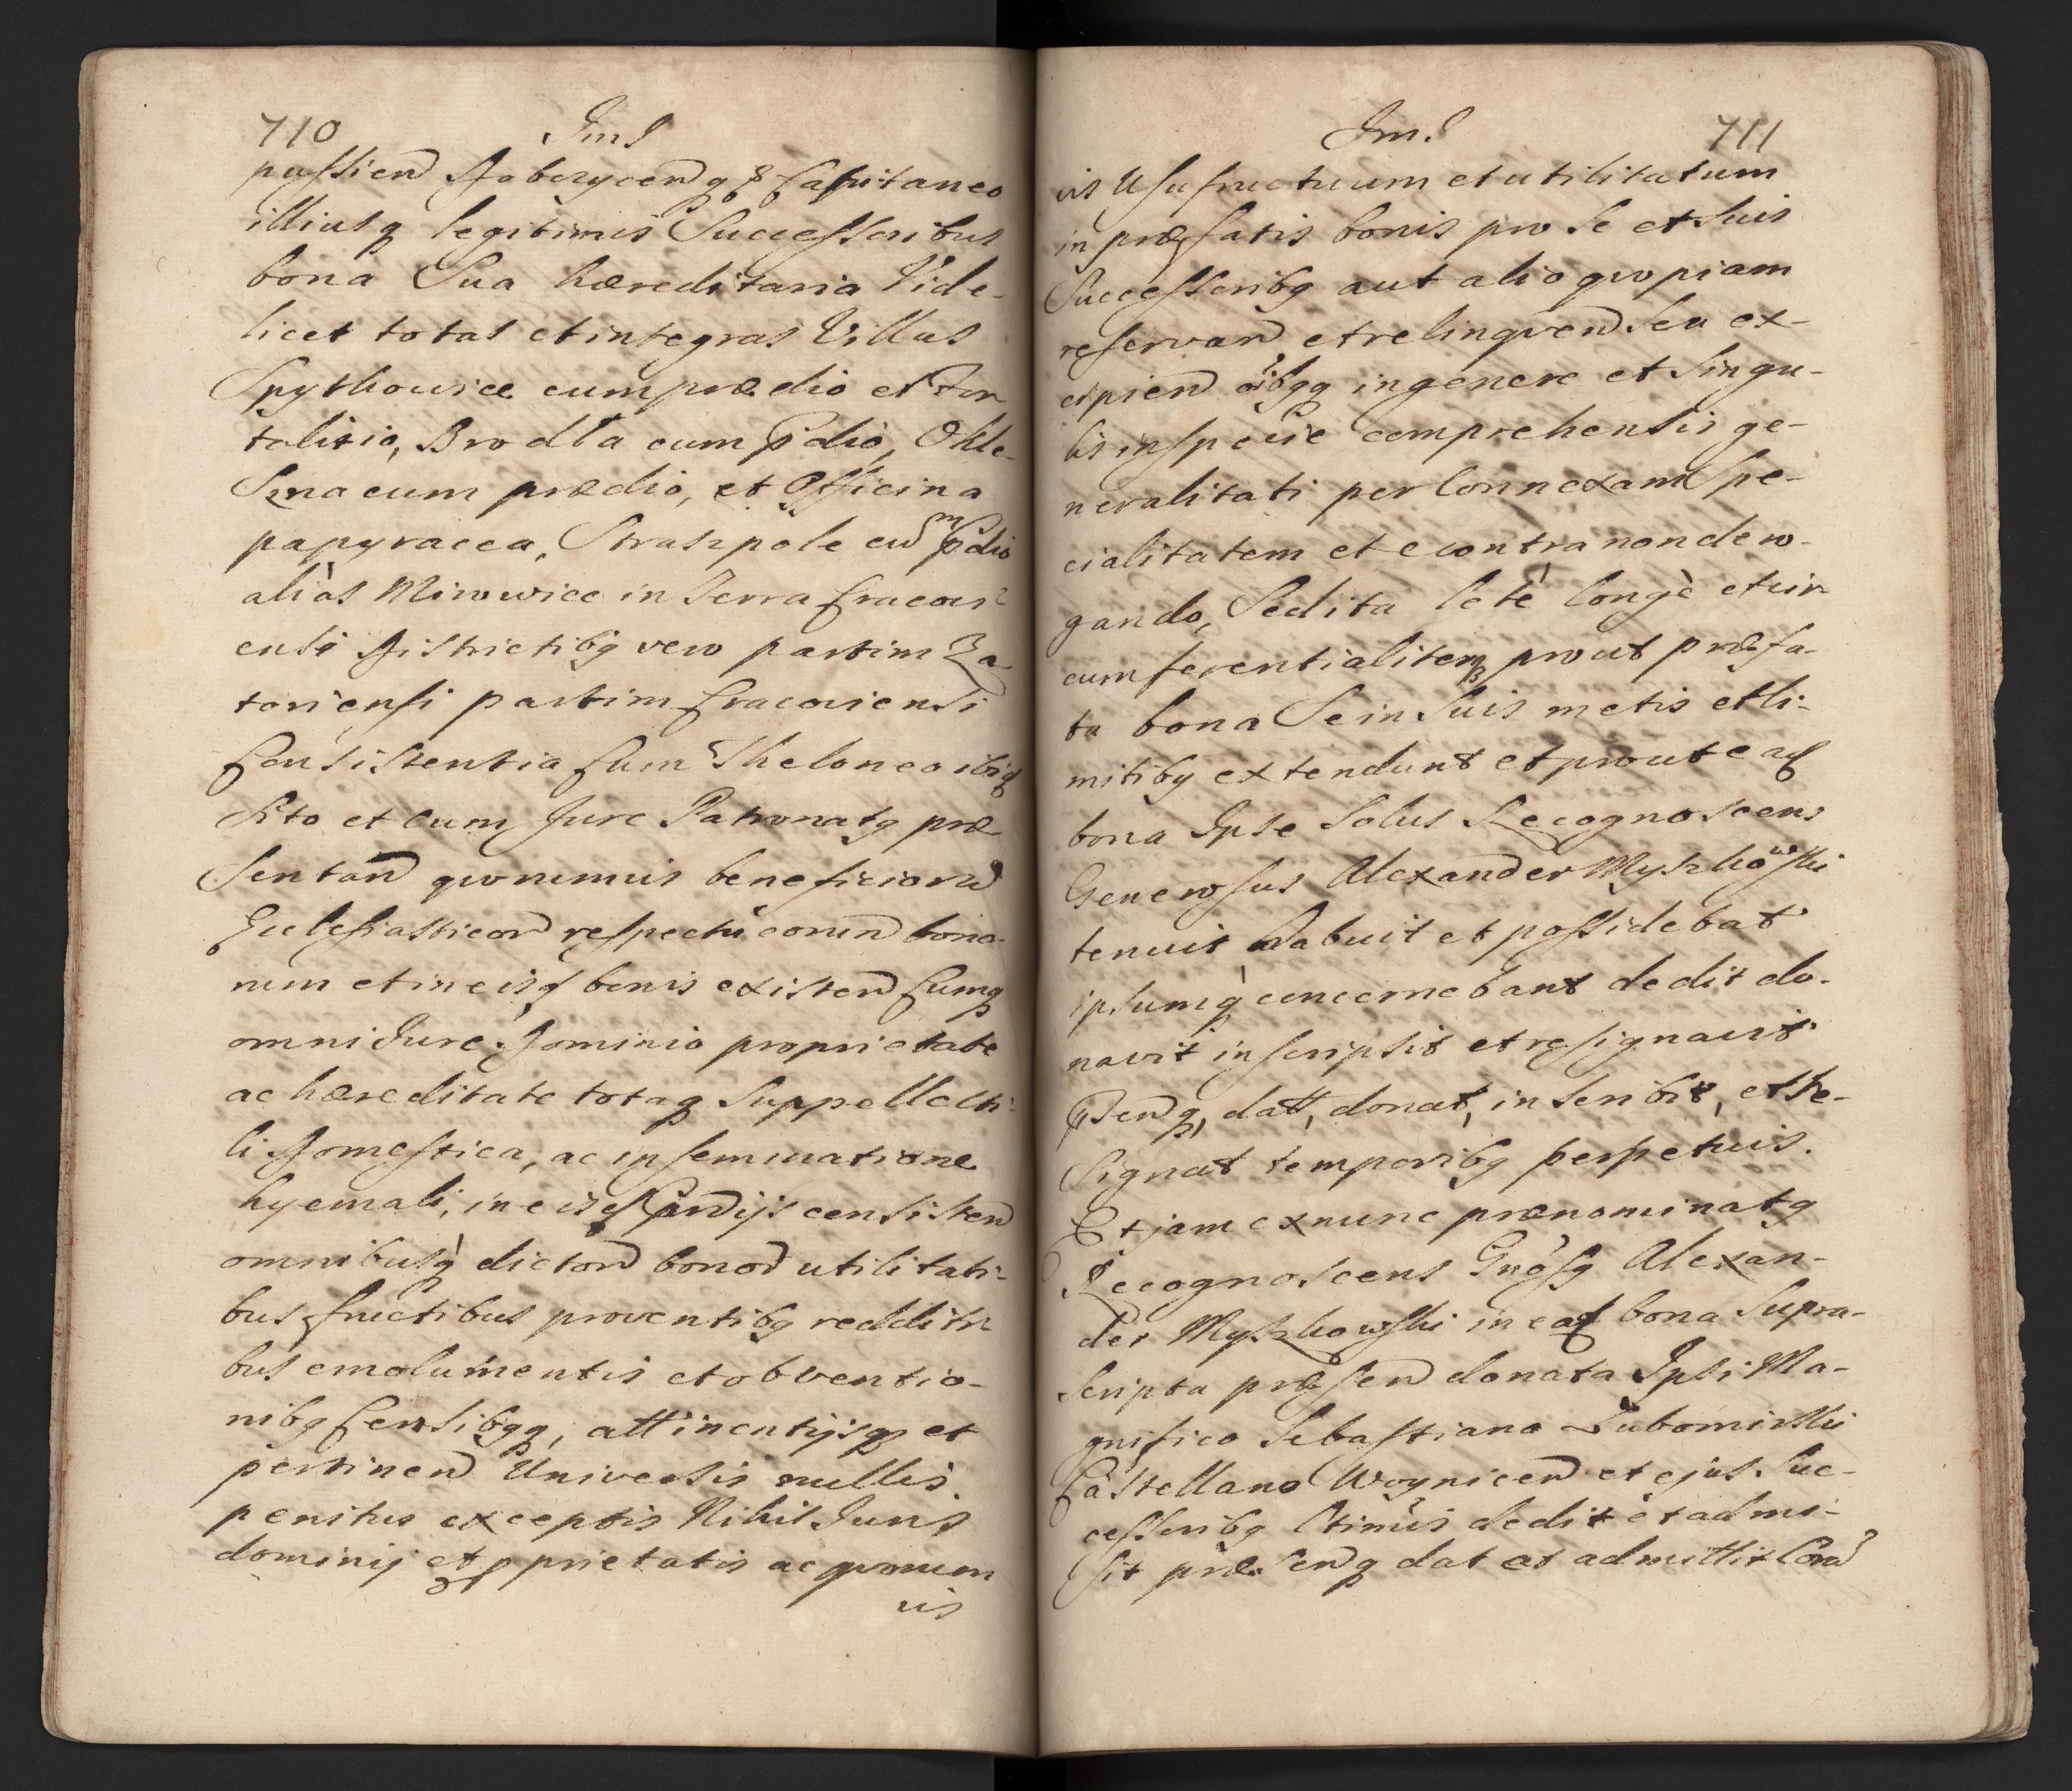 710 Jms
pussien Dobczycenq & Capitaneo
illiusq legitimis Successoribus
bona Sua hæreditaria Vide-
licet totas et integras Villas
Spythowice cum prædio et For
talitio, Brodła cum pdio, Okle-
Sna cum prædio, et Officina
papyracea, Straszpole cum pdio
aliàs Mirowice in Terra Cracovi
ensi Districtibq vero partim Za
toriensi partim Cracoviensi
Consistentia Cum Theloneo ibiq
Sito et cum Jure Patronatq præ
Sentan quorumvis beneficioru
Ecclesiasticor respectu eorund bono-
rum et in eisq bonis existen Cumq
omni Jure Dominio proprietate
ac hæreditate totaq Suppellecti-
li Domestica, ac inseminatione
hyemali, in eisq prædijs consisten
omnibusq dictor bonor utilitati-
bus fructibus proventibq redditi
bus emolumentis et obventio-
nibq Censibqq, attinentijsq et
pertinen Universis nullis
penitus exceptis Nihil Juris
dominij et pprietatis ac quorum
vis
Jms 711
vis Usufructuum et utilitatum
in præfatis bonis pro Se et Suis
Successoribq aut alio quopiam
reservan et relinquen Seu ex-
cipien oibqq in genere et Singu-
lis in specie comprehensis ge-
neralitati per Connexam Spe-
cialitatem et econtra non dero-
gando, Sed ita latè longè et cir
cumferentialiter prout præfa-
ta bona Se in Suis metis et li-
mitibq extendunt et prout eaq
bona Ipse Solus Recognoscens
Generosus Alexander Myszkowski
tenuit habuit et possidebat
ipsumq concernebant dedit do-
navit inscripsit et resignavit
psenq, dat, donat, inscribit, et Re-
Signat temporibq perpetuis.
Et jam ex nunc prænominatq
Recognoscens Gnosq Alexan-
der Myszkowski in eaq bona Supra-
Scripta præsen donata Ipsi Ma-
gnifico Sebastiano Lubomirski
Castellano Woynicen et ejus Suc-
cessoribq ltimis dedit et admi-
sit præsenq dat et admittit Cora